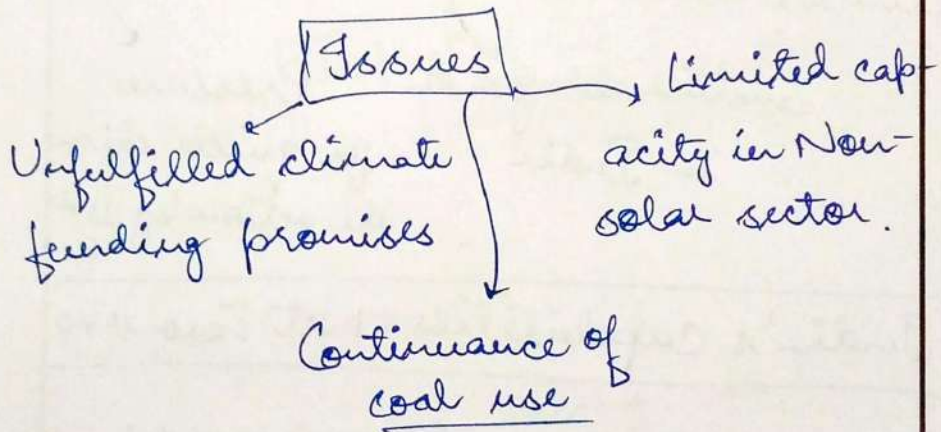 Issues
Unfulfilled climate
funding promises
Limited cap-
acity in Non-
solar sector.
Continuance of
coal use